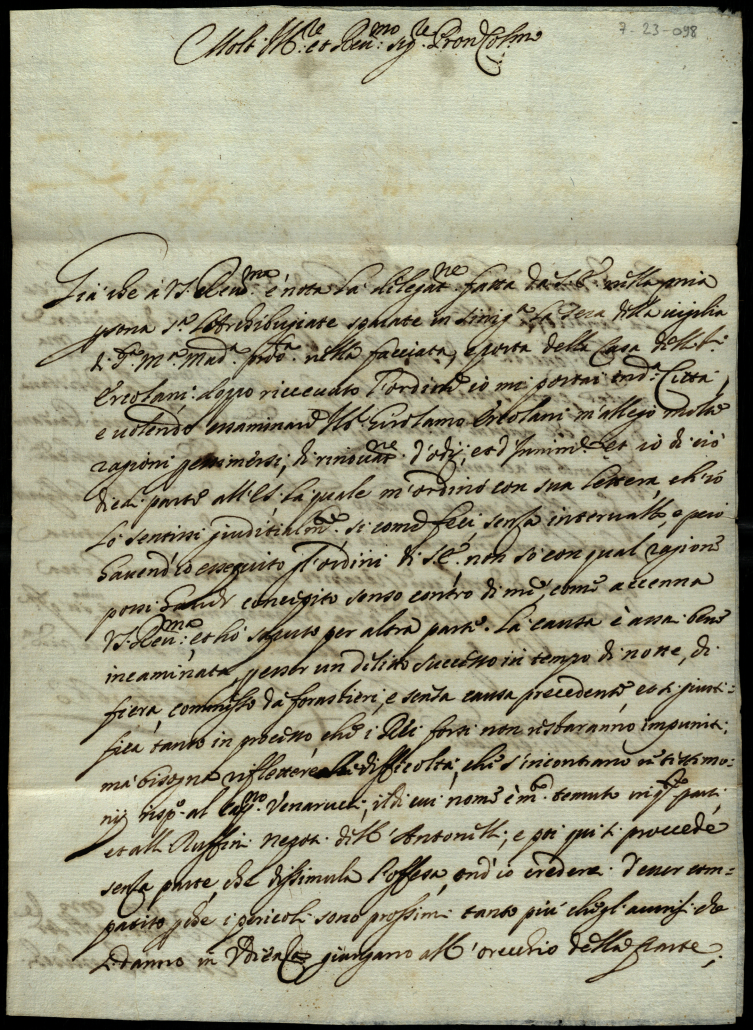 7-23-098
Molt' Ill.re et Rev.mo sig.re Pron Col.mo
Già che à V.S. Rev.ma è nota la delegat.ne fatta da S.E. nella mia
p̄sona s.a l'Archibugiate sparate in Sinig.a la sera della vigilia
di S.a M.a Mad.a nella facciata, e porta della Casa delli SS.i
Ercolani: doppo riccevuto l'ordine io mi portai in d.a Città,
e volendo essaminare il S. Girolamo Ercolani m'allegò molte
ragioni p̄ esimersi, di rinovat.ne d'odij, et d'Inimic. et io di ciò
diedi parte all'E.S. la quale m'ordinò con sua lettera, ch'io
lo sentissi giuditialm.te si come feci senza intervallo, e però
havendo io esseguito gl'ordini di S.E. non so con qual ragione
possi havere concepito senso contro di me, come accenna
V.S. Rev.ma, et hò saputo per altra parte. La causa è assai bene
incaminata, p̄ esser un delitto successo in tempo di notte, di
fiera, commesso da forastieri, e senza causa precedente, e si giusti=
fica tanto in processo che i Rei forsi non restaranno impuniti;
mà bisogna riflettere alle difficoltà, che s'incontrano ne testimo-
nij risp.o al Cap.no Venarucci, il di cui nome è m.o temuto in q.te parti
et alli Ruffini nepoti di M.r Antonelli, e poi qui si procede
senza parte, che dissimula l'offesa, ond'io crederei d'esser com-
patito, p̄che i pericoli sono prossimi tanto più che gl'avvisi che
si danno in giungano all'orecchio delle Parte,